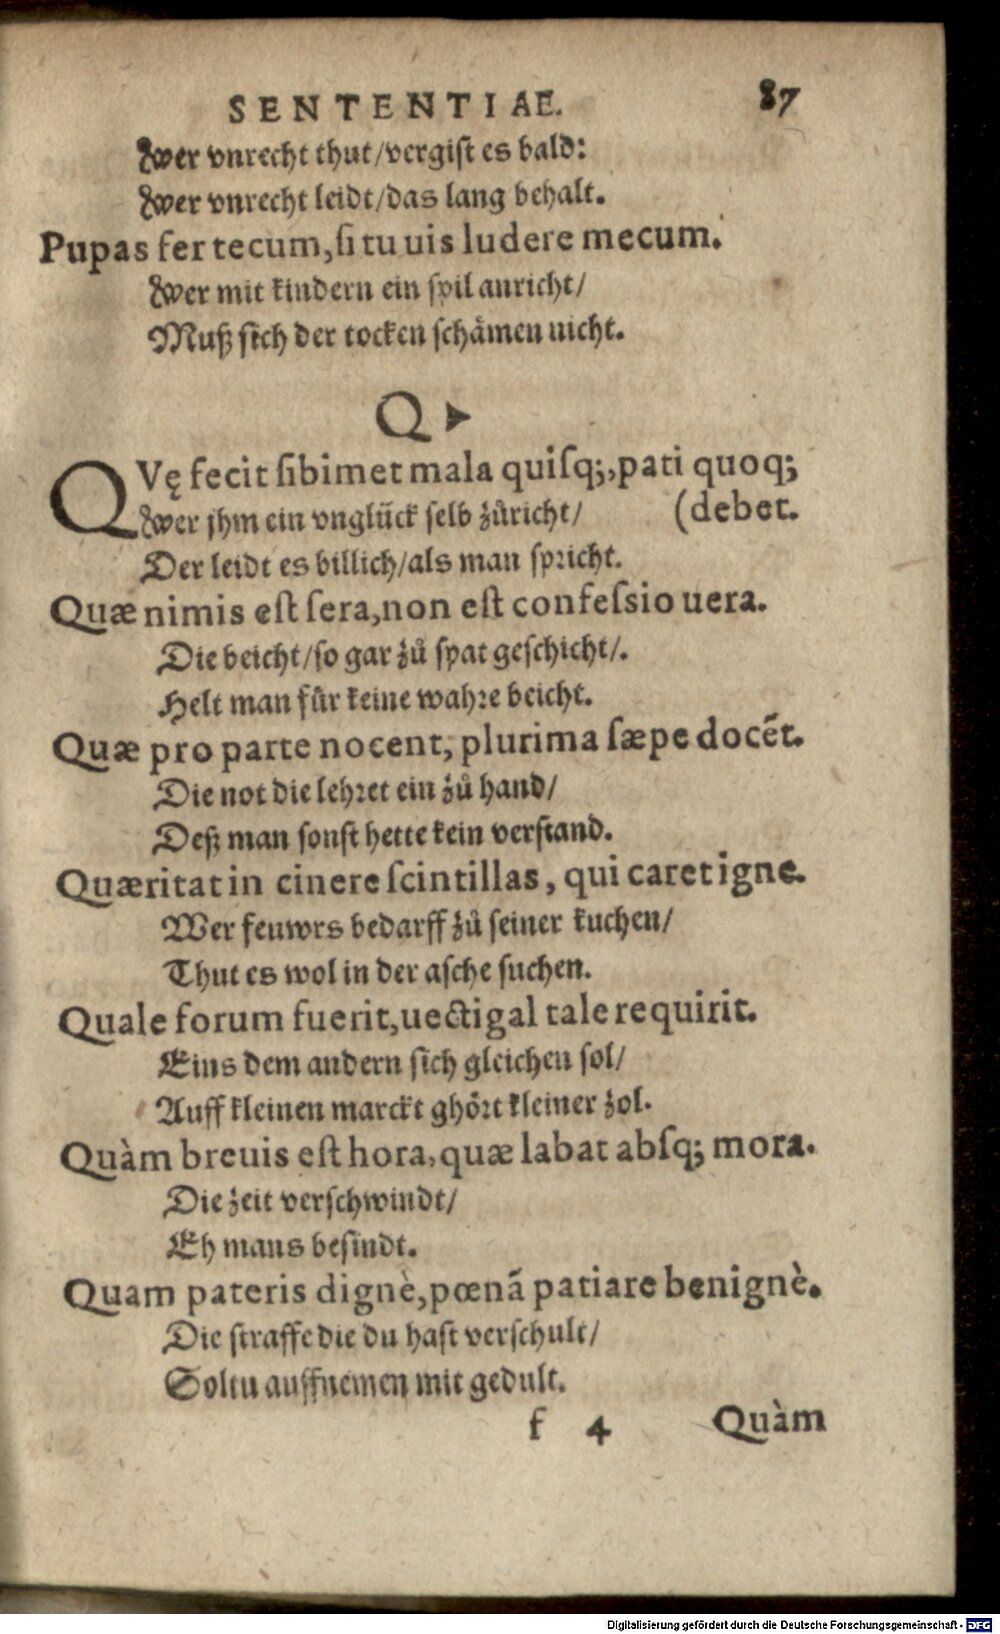 SENTENTIAE. 87
Wer vnrecht thut/vergist es bald:
Wer vnrecht leidt/das lang behalt.
Pupas fer tecum, si tu uis ludere mecum.
Wer mit kindern ein spil anricht/
Muß sich der tocken schämen nicht.
Q
QVę fecit sibimet mala quisq;, pati quoq;
Wer jhm ein vnglück selb zůricht/ (debet.
Der leidt es billich/als man spricht.
Quæ nimis est sera, non est confessio uera.
Die beicht/so gar zů spat geschicht/.
Helt man für keine wahre beicht.
Quæ pro parte nocent, plurima sæpe docẽt.
Die not die lehret ein zů hand/
Deß man sonst hette kein verstand.
Quæritat in cinere scintillas, qui caret igne.
Wer feuwrs bedarff zů seiner kuchen/
Thut es wol in der asche suchen.
Quale forum fuerit, uectigal tale requirit.
Eins dem andern sich gleichen sol/
Auff kleinen marckt ghört kleiner zol.
Quàm breuis est hora, quæ labat absq; mora.
Die zeit verschwindt/
Eh mans besindt.
Quam pateris dignè, pœnã patiare benignè.
Die straffe die du hast verschult/
Soltu auffnemen mit gedult.
f 4 Quàm
Digitalisierung gefördert durch die Deutsche Forschungsgemeinschaft - DFG